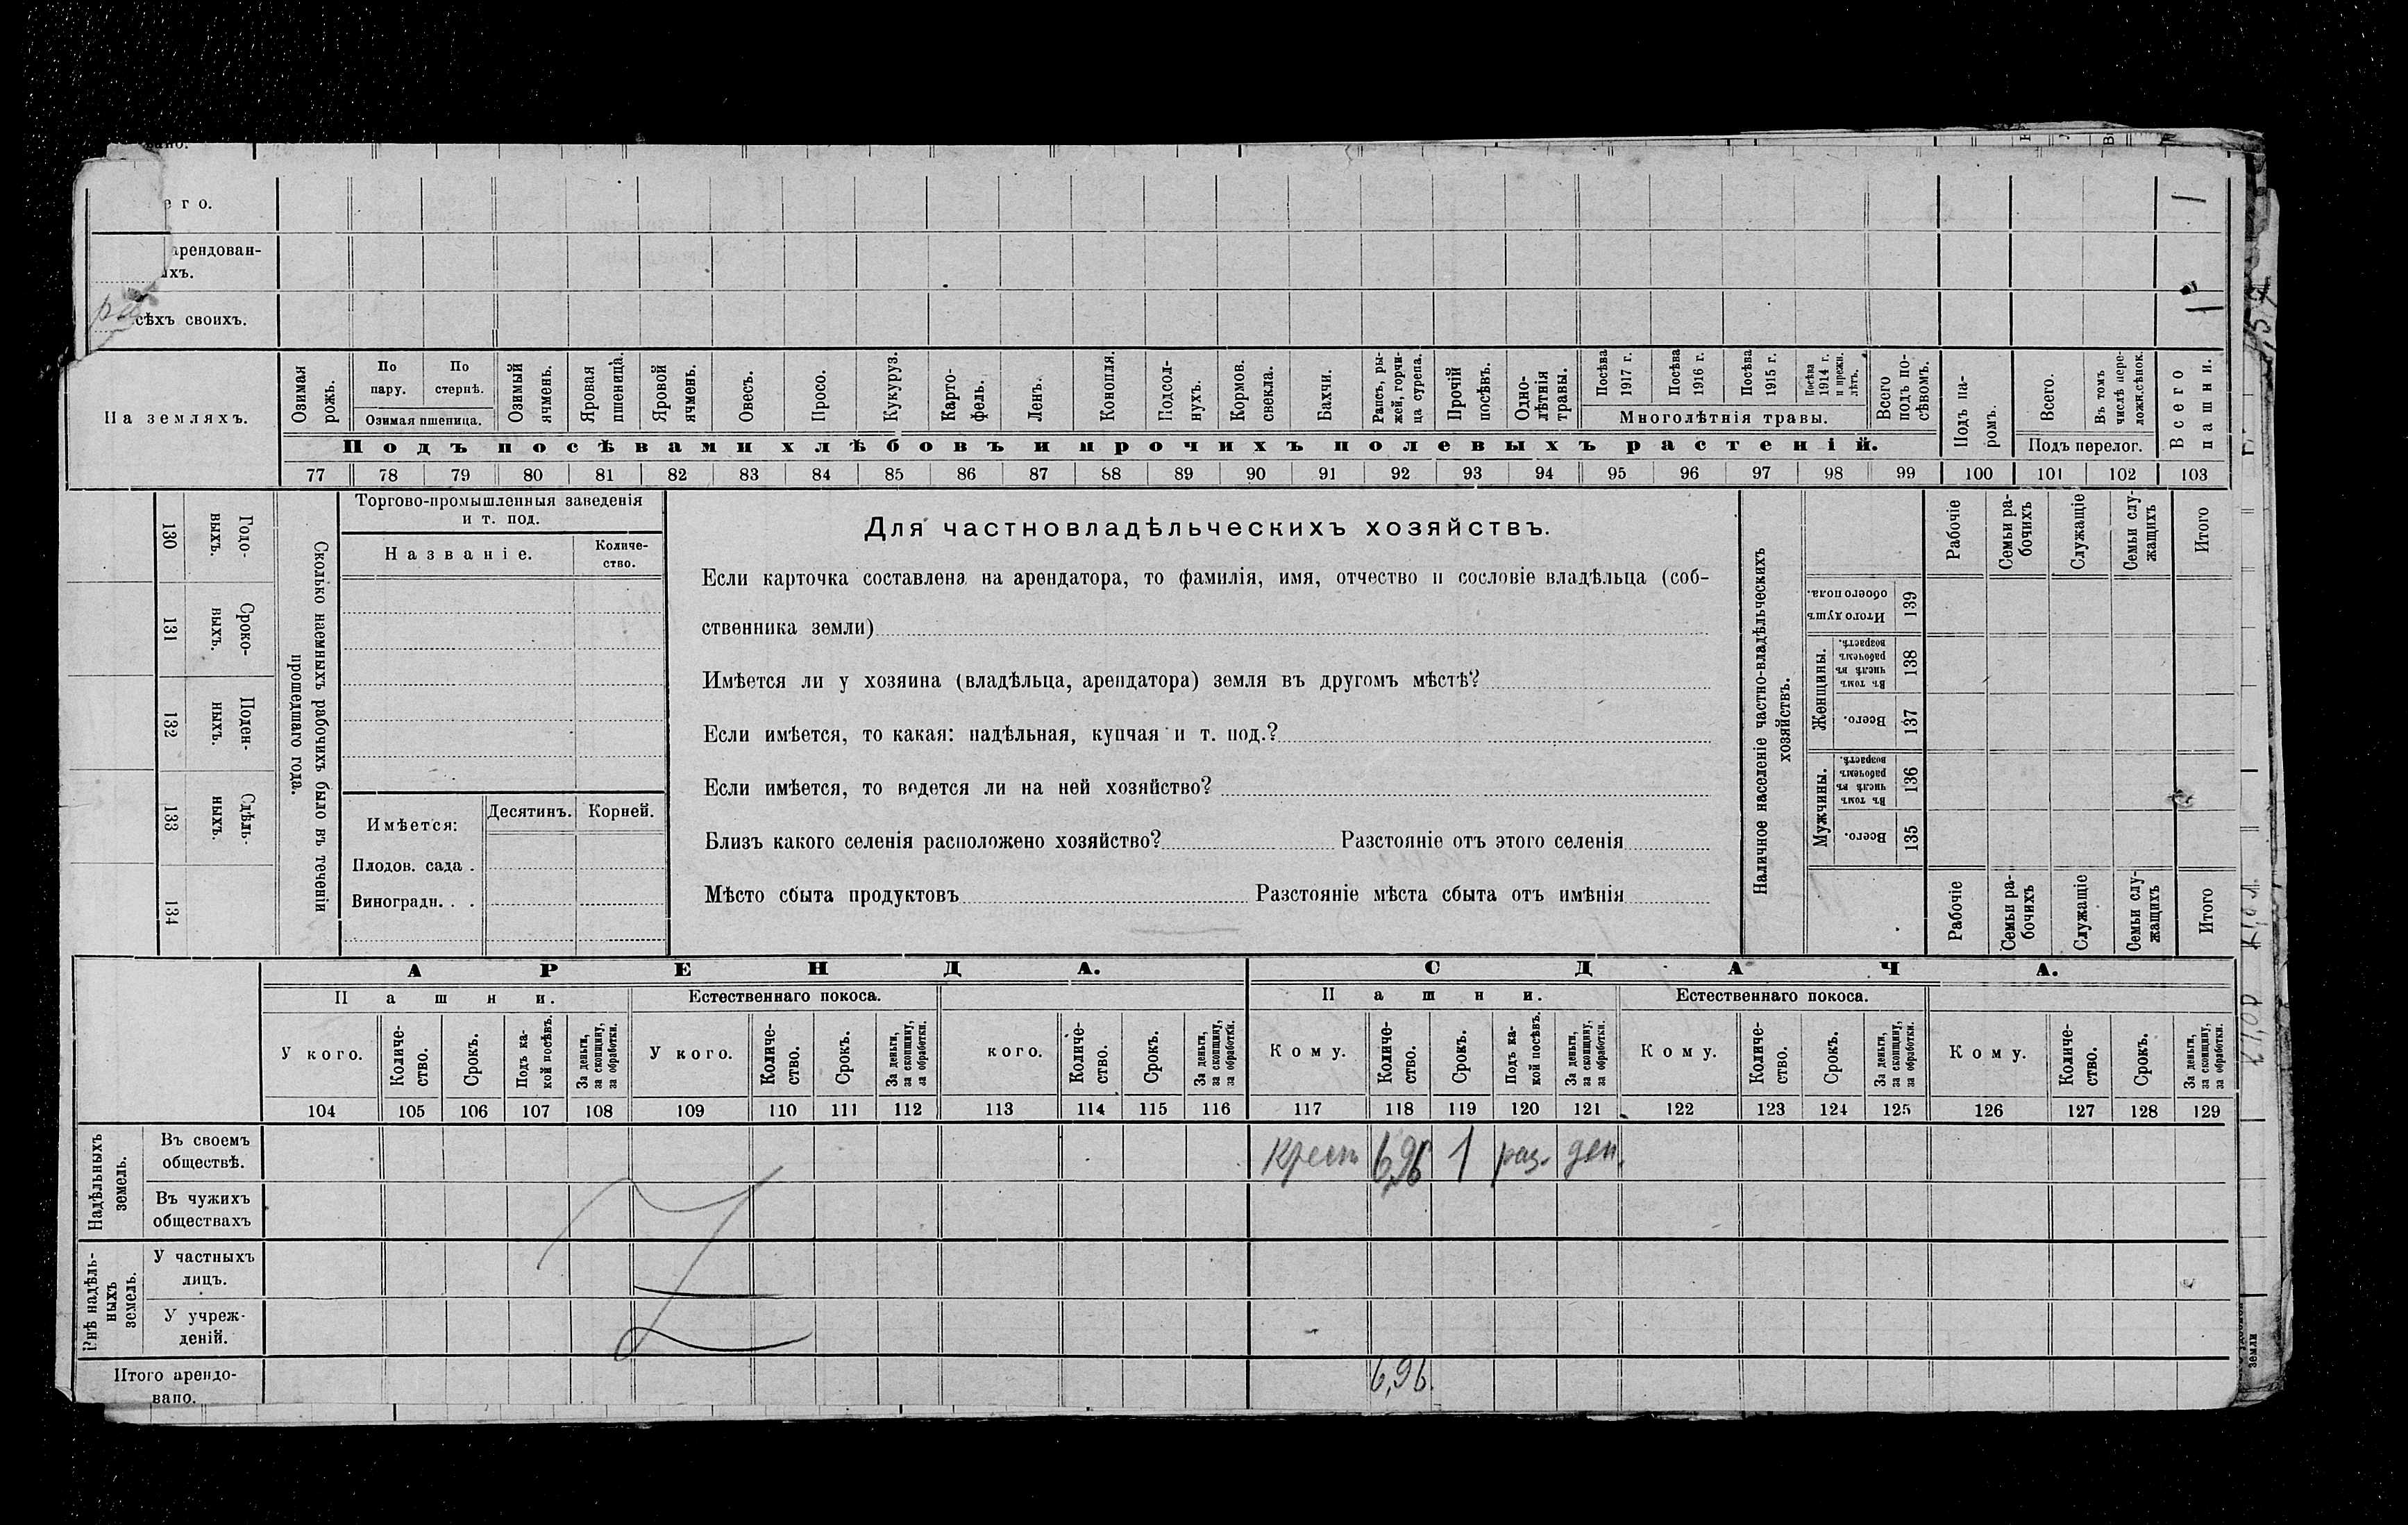 его.
арендован-
ыхъ.
сѣхъ своихъ.
На земляхъ.
Озимая рожь.
По пару.
По стернѣ.
Озимая пшеница.
Озимый ячмень.
Яровая пшеница.
Яровой ячмень.
Овесъ.
Просо.
Кукуруз.
Карто-
фель.
Ленъ.
Конопля.
Подсол-
нухъ.
Кормов. свекла.
Бахчи.
Рапсъ, ры-
жей, горчи-
ца сурепа.
Прочій посѣвъ.
Одно-
лѣтнія травы.
Посѣва 1917 г.
Посѣва 1916 г.
Посѣва 1915 г.
Посѣва 1914 г. и прежн. лѣтъ.
Многолѣтнія травы.
Всего подъ по-
сѣвомъ.
Подъ посѣвами хлѣбовъ и прочихъ полевыхъ растеній.
Подъ па-
ромъ.
Всего.
Въ томъ числѣ пере-
ложн. сѣнок.
Подъ перелог.
Всего пашни.
77 78 79 80 81 82 83 84 85 86 87 88 89 90 91 92 93 94 95 96 97 98 99 100 101 102 103
130 Годо-
выхъ.
131 Сроко-
выхъ.
132 Поден-
ныхъ.
133 Сдѣль-
ныхъ.
134
Сколько наемныхъ рабочихъ было въ теченіи
прошедшаго года.
Торгово-промышленныя заведенія
и т. под.
Названіе.
Количе-
ство.
Имѣется:
Десятинъ.
Корней.
Плодов. сада .
Виноградн. . .
Для частновладѣльческихъ хозяйствъ.
Если карточка составлена на арендатора, то фамилія, имя, отчество и сословіе владѣльца (соб-
ственника земли)
Имѣется ли у хозяина (владѣльца, арендатора) земля въ другомъ мѣстѣ?
Если имѣется, то какая: надѣльная, купчая и т. под.?
Если имѣется, то ведется ли на ней хозяйство?
Близъ какого селенія расположено хозяйство? Разстояніе отъ этого селенія
Мѣсто сбыта продуктовъ Разстояніе мѣста сбыта отъ имѣнія
Наличное населеніе частно-владѣльческихъ
хозяйствъ.
Рабочіе
Семьи ра-
бочихъ
Служащіе
Семьи слу-
жащихъ
Итого
Итого душъ обоего пола. 139
Женщины.
Въ томъ числѣ въ рабочемъ возрастѣ. 138
Всего. 137
Мужчины.
Въ томъ числѣ въ рабочемъ возрастѣ. 136
Всего. 135
Рабочіе
Семьи ра-
бочихъ
Служащіе
Семьи слу-
жащихъ
Итого
АРЕНДА.
СДАЧА.
Пашни.
Естественнаго покоса.
Пашни.
Естественнаго покоса.
У кого.
Количе-
ство.
Срокъ.
Подъ ка-
кой посѣвъ.
За деньги, за скопщину, за обработки.
У кого.
Количе-
ство.
Срокъ.
За деньги, за скопщину, за обработки.
кого.
Количе-
ство.
Срокъ.
За деньги, за скопщину, за обработки.
Кому.
Количе-
ство.
Срокъ.
Подъ ка-
кой посѣвъ.
За деньги, за скопщину, за обработки.
Кому.
Количе-
ство.
Срокъ.
За деньги, за скопщину, за обработки.
Кому.
Количе-
ство.
Срокъ.
За деньги, за скопщину, за обработки.
104 105 106 107 108 109 110 111 112 113 114 115 116 117 118 119 120 121 122 123 124 125 126 127 128 129
Надѣльныхъ земель.
Въ своемъ
обществѣ.
Крест 6,96 1 раз. ден.
Въ чужихъ
обществахъ
Внѣ надѣль-
ныхъ земель.
У частныхъ
лицъ.
У учреж-
деній.
Итого арендо-
вано.
6,96.
земли